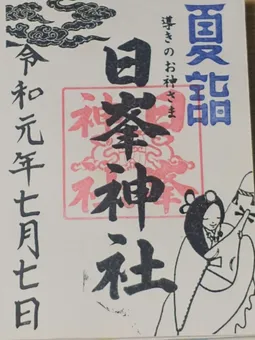 夏詣
導きのお神さま
日峯神社
日峯神社
令和元年七月七日